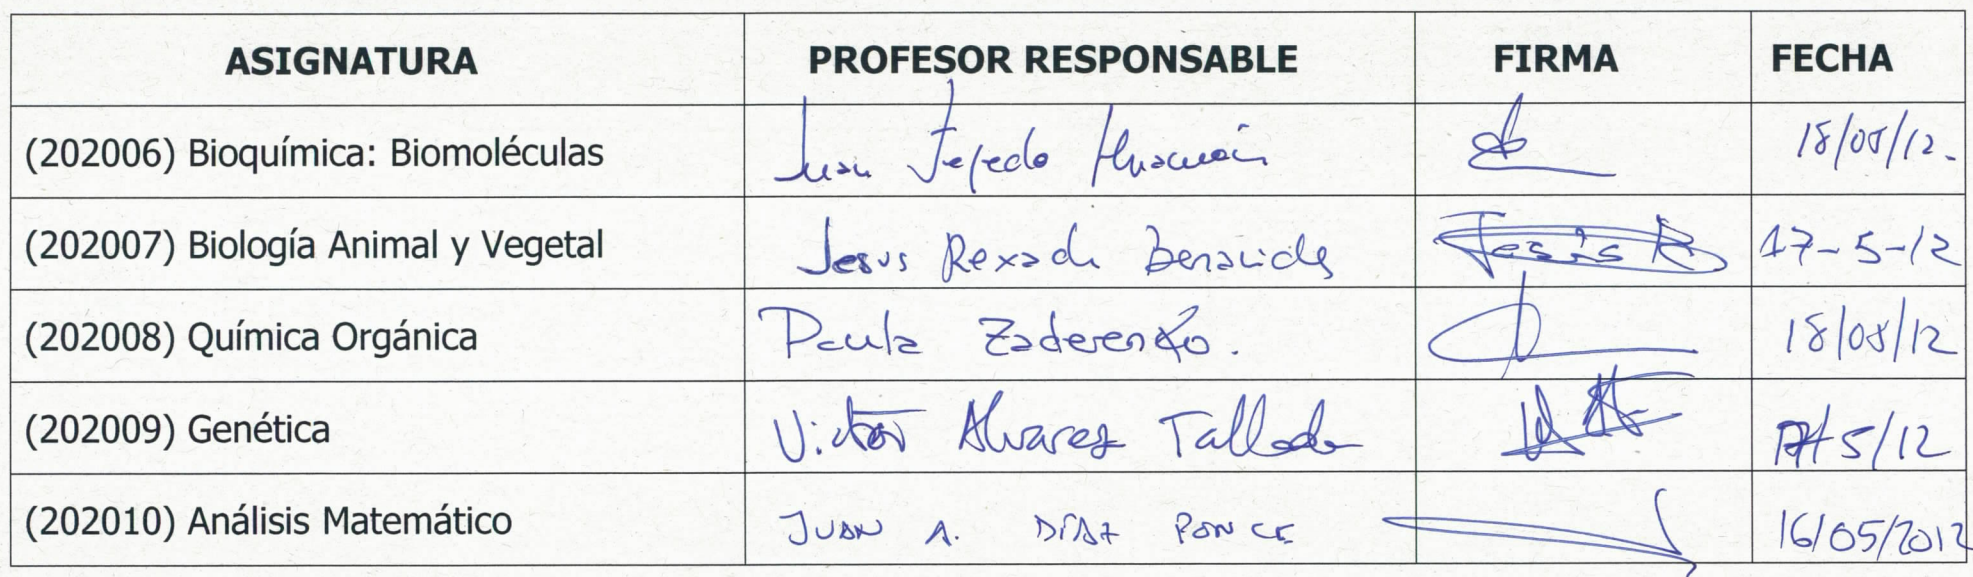 ASIGNATURA PROFESOR RESPONSABLE FIRMA FECHA
(202006) Bioquímica: Biomoléculas Juan Tejedo Huamán 18/05/12.
(202007) Biología Animal y Vegetal Jesus Rexach Benavides Jesús R 17-5-12
(202008) Química Orgánica Paula Zaderenko. 18/05/12
(202009) Genética Victor Alvarez Tallada 17/5/12
(202010) Análisis Matemático JUAN A. DÍAZ PONCE 16/05/2012